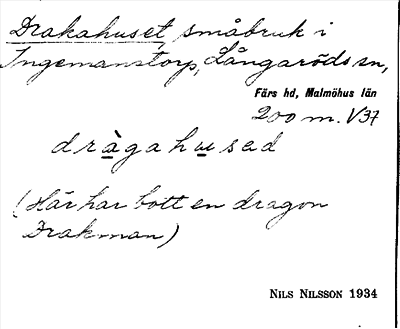 Drakahuset, småbruk i
Ingemanstorp, Långaröds sn,
Färs hd, Malmöhus län
200 m. V37
dràgahused
(Här har bott en dragon
Drakman)
NILS NILSSON 1934